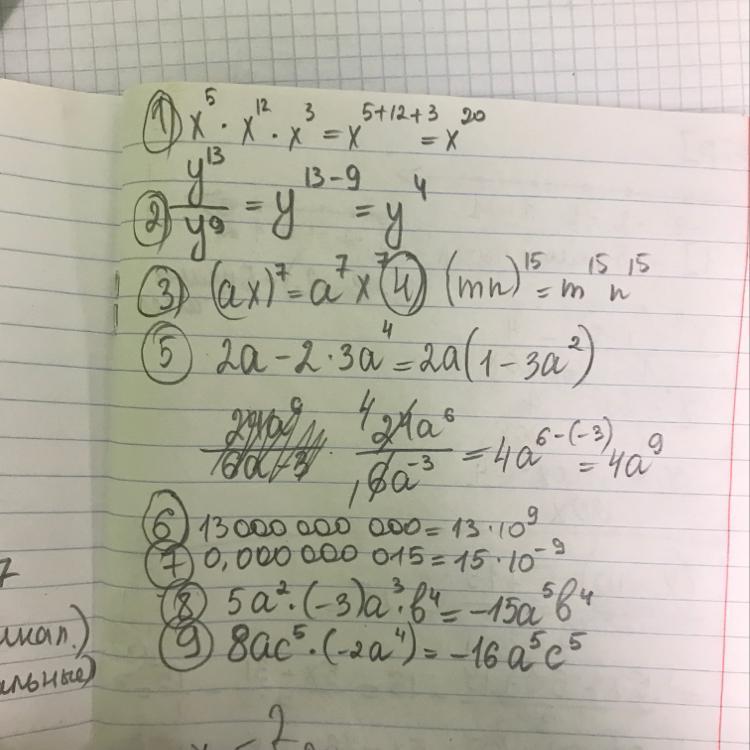 ① x⁵ · x¹² · x³ = x⁵⁺¹²⁺³ = x²⁰
② y¹³/y⁹ = y¹³⁻⁹ = y⁴
③ (ax)⁷ = a⁷x⁷ ④ (mn)¹⁵ = m¹⁵n¹⁵
⑤ 2a − 2 · 3a⁴ = 2a(1 − 3a²)
4 24a⁶/1 6a⁻³ = 4a⁶⁻⁽⁻³⁾ = 4a⁹
⑥ 13 000 000 000 = 13 · 10⁹
⑦ 0,000 000 015 = 15 · 10⁻⁹
⑧ 5a² · (−3)a³ · b⁴ = −15a⁵b⁴
⑨ 8ac⁵ · (−2a⁴) = −16a⁵c⁵